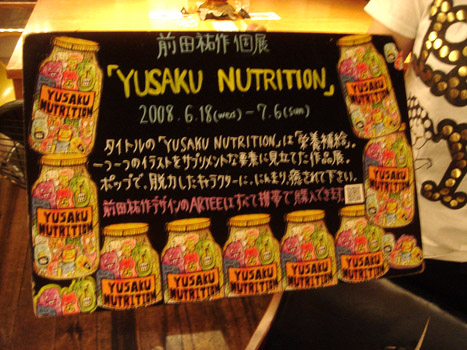 前田祐作個展
「YUSAKU NUTRITION」
2008.6.18(wed)-7.6(sun)
タイトルの「YUSAKU NUTRITION」は「栄養補給」。
一つ一つのイラストをサプリメントな要素に見立てた作品展。
ポップで、脱力したキャラクターに、にんまり癒されて下さい。
前田祐作デザインのARTEEはすべて携帯で購入できます
YUSAKU NUTRITION
YUSAKU NUTRITION
YUSAKU NUTRITION
YUSAKU NUTRITION
YUSAKU NUTRITION
YUSAKU NUTRITION
YUSAKU NUTRITION
YUSAKU NUTRITION
YUSAKU NUTRITION
YUSAKU NUTRITION